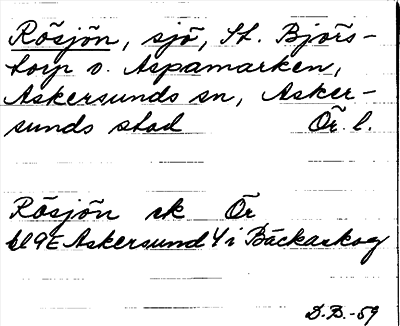 Rösjön, sjö, St. Björs-
torp o. Aspamarken,
Askersunds sn, Asker-
sunds stad Ör. l.
Rösjön sk Ör
bl 9E Askersund 4 i Bäckaskog
D.B.-59